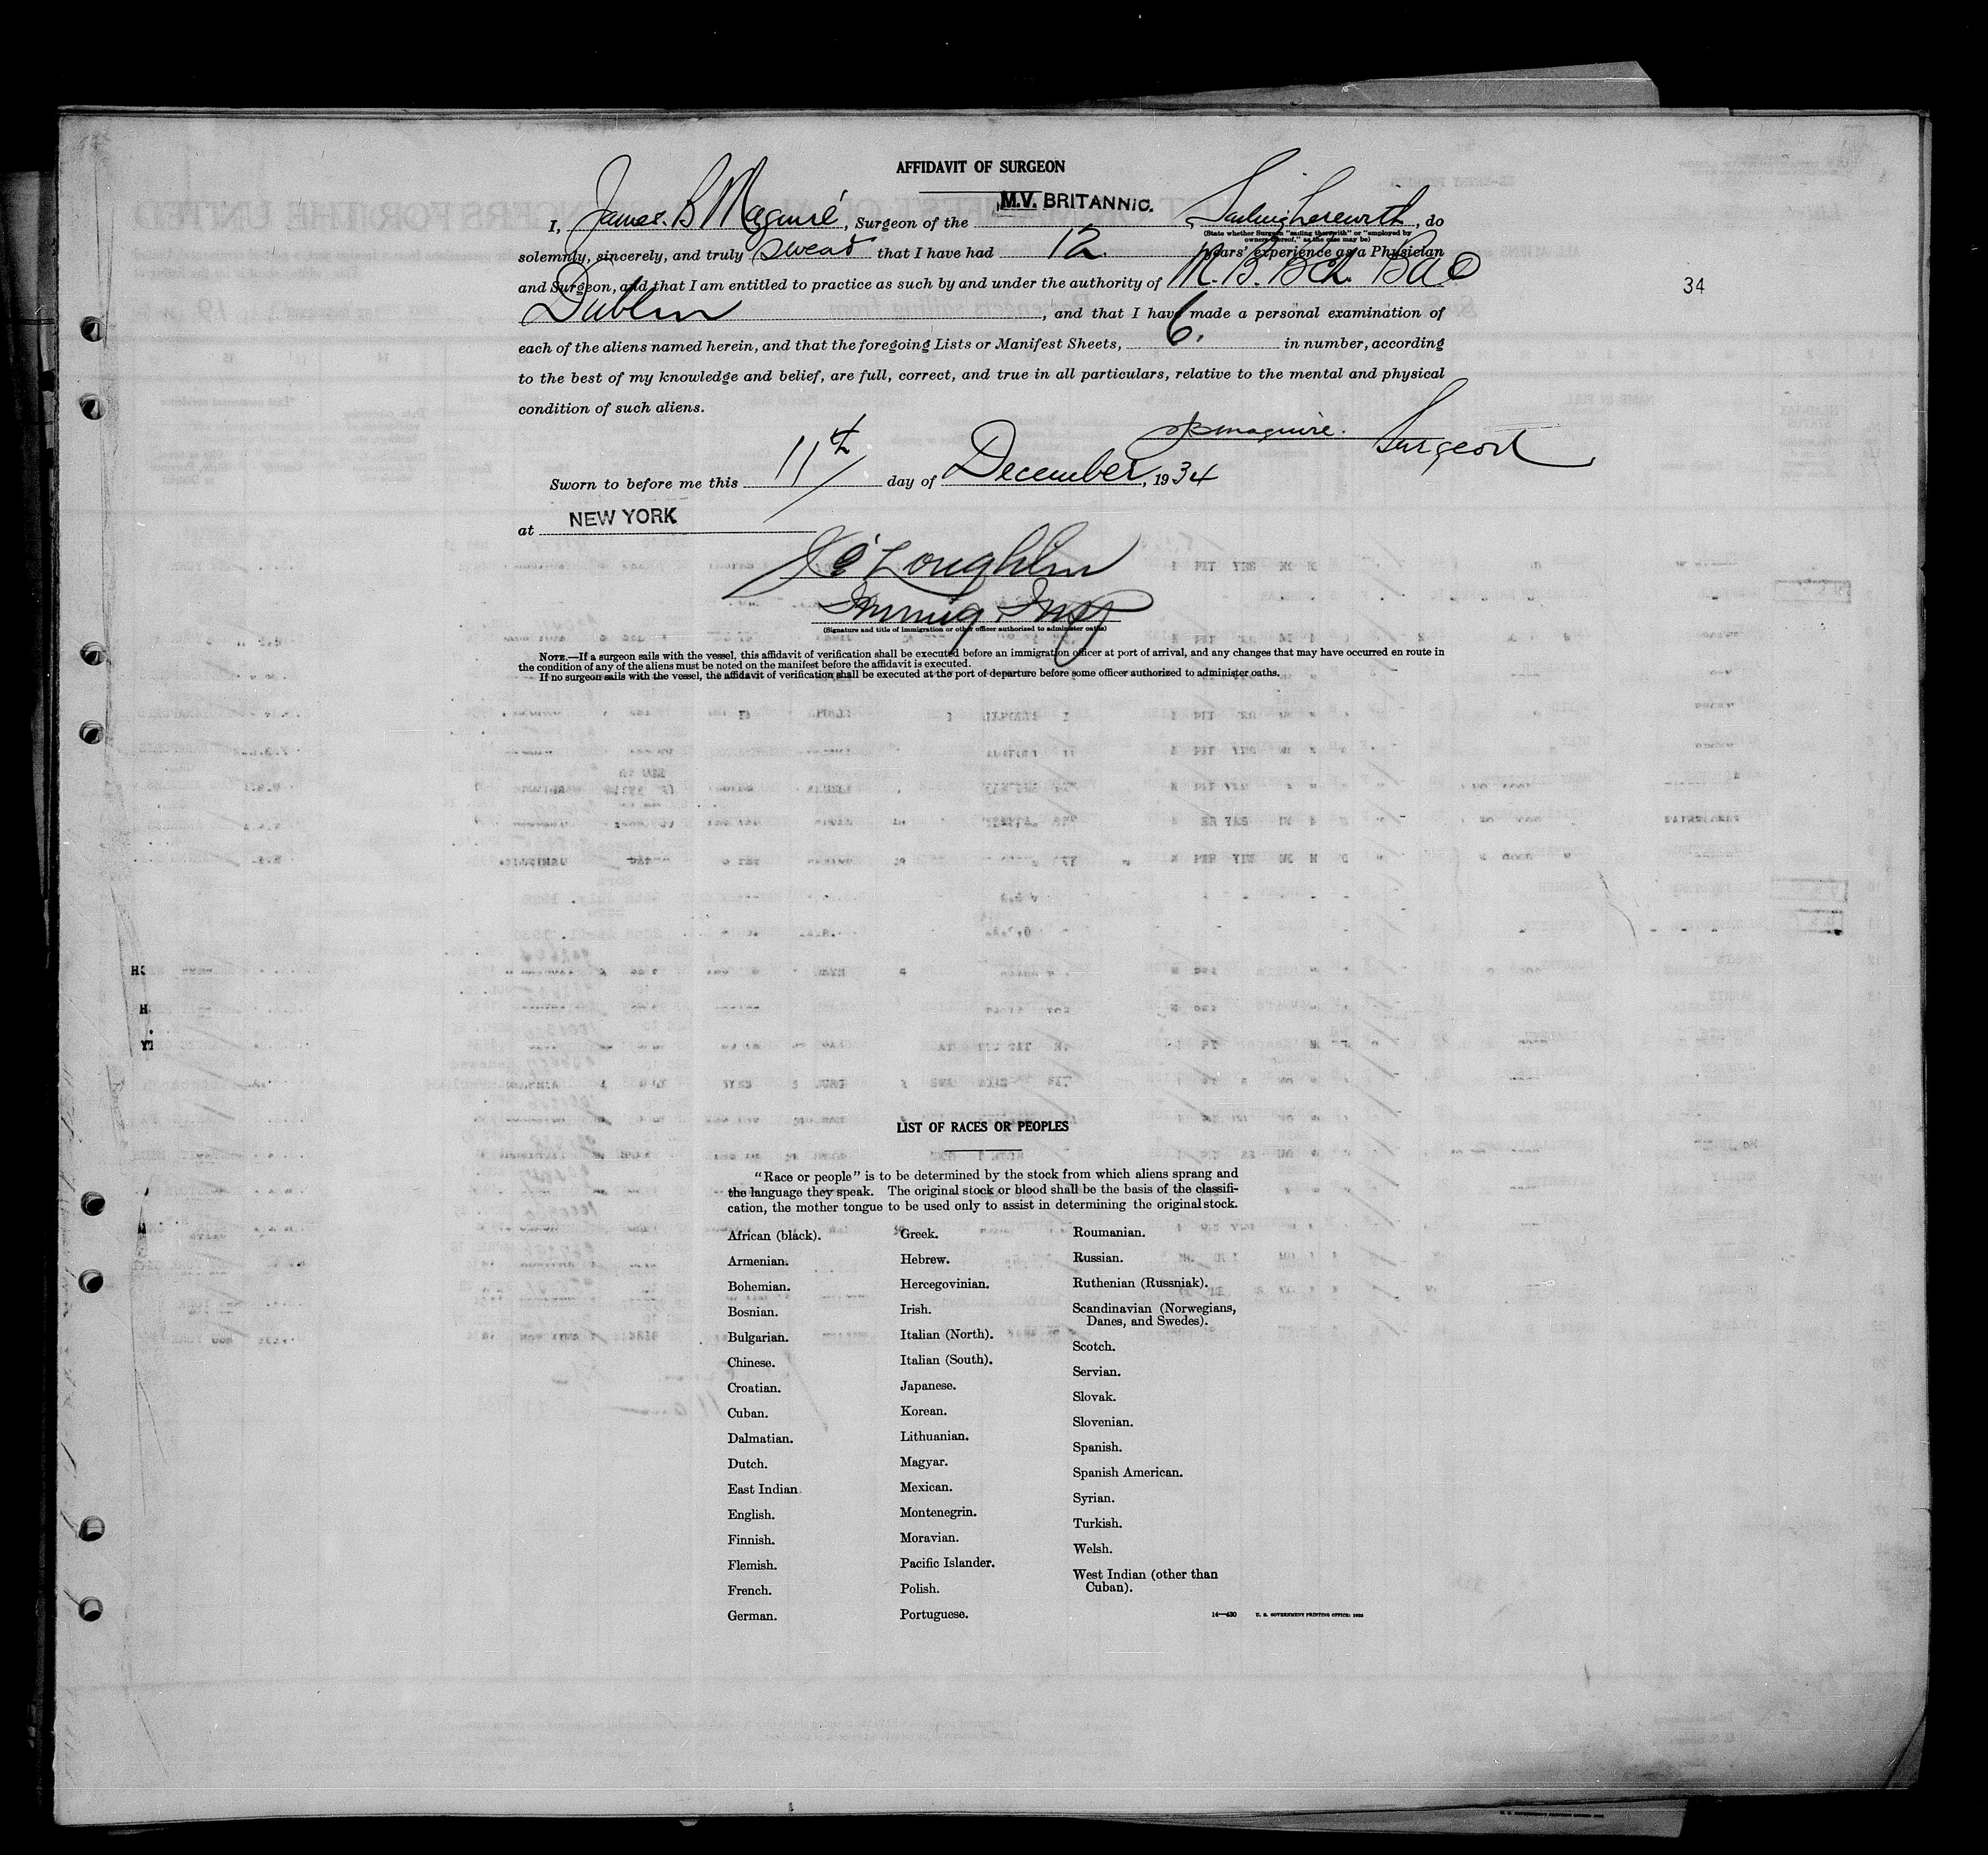 AFFIDAVIT OF SURGEON
I, James. B Maguire, Surgeon of the M.V. BRITANNIC., Sailing herewith, do
(State whether Surgeon "sailing therewith" or "employed by
owners thereof," as the case may be)
solemnly, sincerely, and truly swear that I have had 12. years' experience as a Physician
and Surgeon, and that I am entitled to practice as such by and under the authority of M.B. BCh. BAO
Dublin, and that I have made a personal examination of
each of the aliens named herein, and that the foregoing Lists or Manifest Sheets, 6. in number, according
to the best of my knowledge and belief, are full, correct, and true in all particulars, relative to the mental and physical
condition of such aliens.
JBMaguire. Surgeon
Sworn to before me this 11th day of December, 1934
at NEW YORK
J O'Loughlin
Immig. Insp
(Signature and title of immigration or other officer authorized to administer oaths)
NOTE.—If a surgeon sails with the vessel, this affidavit of verification shall be executed before an immigration officer at port of arrival, and any changes that may have occurred en route in
the condition of any of the aliens must be noted on the manifest before the affidavit is executed.
If no surgeon sails with the vessel, the affidavit of verification shall be executed at the port of departure before some officer authorized to administer oaths.
34
LIST OF RACES OR PEOPLES
"Race or people" is to be determined by the stock from which aliens sprang and
the language they speak. The original stock or blood shall be the basis of the classifi-
cation, the mother tongue to be used only to assist in determining the original stock.
African (black).
Armenian.
Bohemian.
Bosnian.
Bulgarian.
Chinese.
Croatian.
Cuban.
Dalmatian.
Dutch.
East Indian
English.
Finnish.
Flemish.
French.
German.
Greek.
Hebrew.
Hercegovinian.
Irish.
Italian (North).
Italian (South).
Japanese.
Korean.
Lithuanian.
Magyar.
Mexican.
Montenegrin.
Moravian.
Pacific Islander.
Polish.
Portuguese.
Roumanian.
Russian.
Ruthenian (Russniak).
Scandinavian (Norwegians,
Danes, and Swedes).
Scotch.
Servian.
Slovak.
Slovenian.
Spanish.
Spanish American.
Syrian.
Turkish.
Welsh.
West Indian (other than
Cuban).
14—430 U. S. GOVERNMENT PRINTING OFFICE: